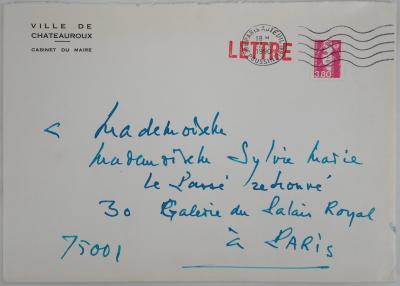 VILLE DE
CHATEAUROUX
CABINET DU MAIRE
LETTRE
PARIS AUTEUIL
18 H
1990
3,80
Mademoiselle
Mademoiselle Sylvie Marie
Le Passé retrouvé
30 Galerie du Palais Royal
75001 à PARIS